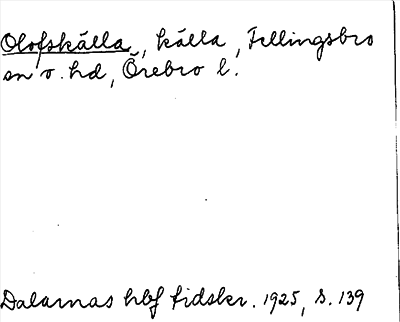 Olofskälla, källa, Fellingsbro
sn o. hd, Örebro l.
Dalarnas hbf tidskr. 1925, s. 139